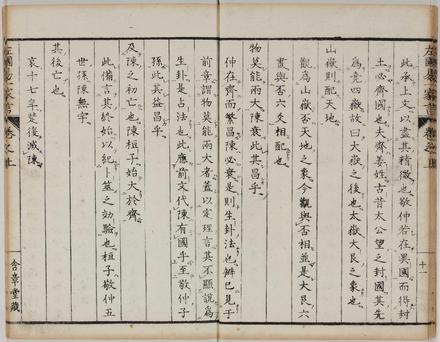 此承上文以盡其精微也敬仲若在異國而得封
土必齊國也夫齊姜姓古昔太公望之封國其先
為堯四嶽故曰大嶽之後也太嶽大艮之象也
山嶽則配天地
觀為山嶽否天地之象今觀與否相並是大艮六
畫與否六爻相配也
物莫能兩大陳衰此其昌乎
仲在齊而繁昌陳必衰是則生卦法也辨已見于
前章謂物莫能兩大者蓋以定理言其不顯說為
生卦是占法也此應前文代陳有國乎至敬仲子
孫此其益昌乎
及陳之初亡也陳桓子始大於齊
此備言其終始以紀卜筮之効驗也桓子敬仲五
世孫陳無宇
其後亡也
哀十七年楚復滅陳
左國易一家言 卷之上
十一
含章堂藏